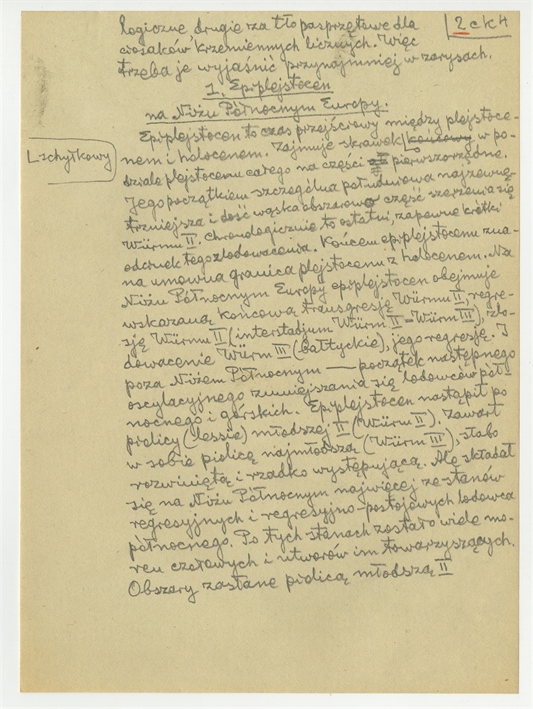 2 ckH
logiczne, drugie za tło pasprzętowe dla
ciosaków krzemiennych licznych. Więc
trzeba je wyjaśnić przynajmniej w zarysach.
1. Epiplejstocen
na Niżu Północnym Europy.
Epiplejstocen to czas przejściowy między plejstoce-
nem i holocenem. Zajmuje skrawek końcowy w po-
schyłkowy
dziale plejstocenu całego na części pierwszorzędne.
Jego początkiem szczególna południowa najzewnę-
trzniejsza i dość wąska obszarowo część szerzenia się
Würmu II. Chronologicznie to ostatni, zapewne krótki
odcinek tego zlodowacenia. Końcem epiplejstocenu zna-
na umowna granica plejstocenu z holocenem. Na
Niżu Północnym Europy epiplejstocen obejmuje
wskazaną końcową transgresję Würmu II, regre-
sję Würmu II (interstadjum Würm II - Würm III), zlo-
dowacenie Würm III (bałtyckie), jego regresję. I
poza Niżem Północnym — początek następnego
oscylacyjnego zmniejszania się lodowców pół-
nocnego i górskich. Epiplejstocen nastąpił po
pidlicy (lessie) młodszej II (Würm II). Zawarł
w sobie pidlicę najmłodszą (Würm III), słabo
rozwiniętą i rzadko występującą. Ale składał
się na Niżu Północnym najwięcej ze stanów
regresyjnych i regresyjno-postojowych lodowca
północnego. Po tych stanach zostało wiele mo-
ren czołowych i utworów im towarzyszących.
Obszary zasłane pidlicą młodszą II